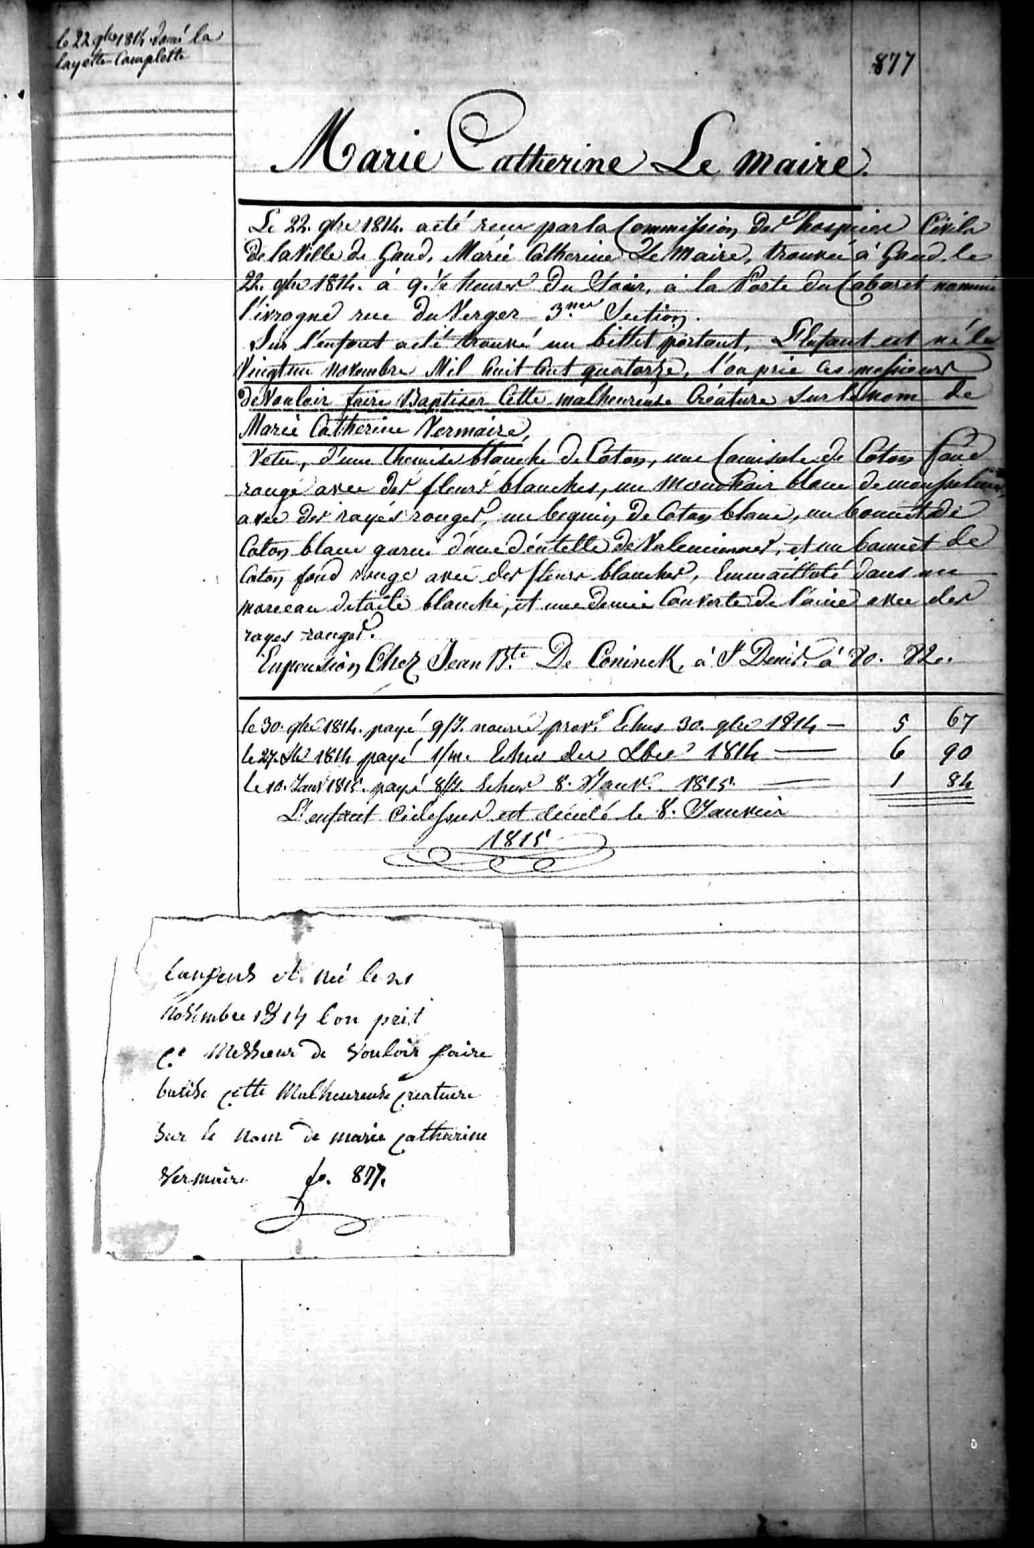 le 22 gbre 1814 donné la
layette Complette
877
Marie Catherine Le maire.
Le 22. gbre 1814. a été reçu par la Commission des hospices Civils
de la Ville de Gand, Marie Catherine Le Maire, trouvée à Gand le
22. gbre 1814. à 9 1/2 heures du Soir, à la Porte du Cabaret nommé
l'ivrogne rue du Verger 3.me Section.
Sur l'enfant a été trouvé un billet portant, L'enfant est né le
Vingt un novembre Mil huit Cent quatorze, l'on prie Ces messieurs
de Vouloir faire Baptiser Cette malheureuse Créature sur le nom de
Marie Catherine Vermaire,
Vetu, d'une Chemise blanche de Coton, une Camisole de Coton fond
rouge avec des fleurs blanches, un Mouchoir blanc de mousseline,
avec des rayes rouges, un beguin de Coton blanc, un bonnet de
Coton blanc garni d'une dentelle de Valenciennes, et un bonnet de
Coton fond rouge avec des fleurs blanches, Emmailloté dans un
morceau de toile blanche, et une demie Couverte de laine avec des
rayes rouges.
En pension Chez Jean Bte. De Coninck, à St Denis. à 80. 82.
le 30. gbre 1814. payé 9/j. nourre prov.e Echus 30. gbre 1814 — 5 67
le 27. Xbr 1814 payé 1/m. Echus der Xbre 1814 — 6 90
le 10. Janv 1815. payé 8/j. Echus 8. Janv. 1815. — 1 84
L'enfant Cidessus est décédé le 8. Janvier
1815
Lanfend et né le 21
Novembre 1814 lon prit
Ce Messieur de Vouloir faire
batise Cette Malheureuse Creature
Sur le Nom de marie Catharine
Vermaire fo. 877.